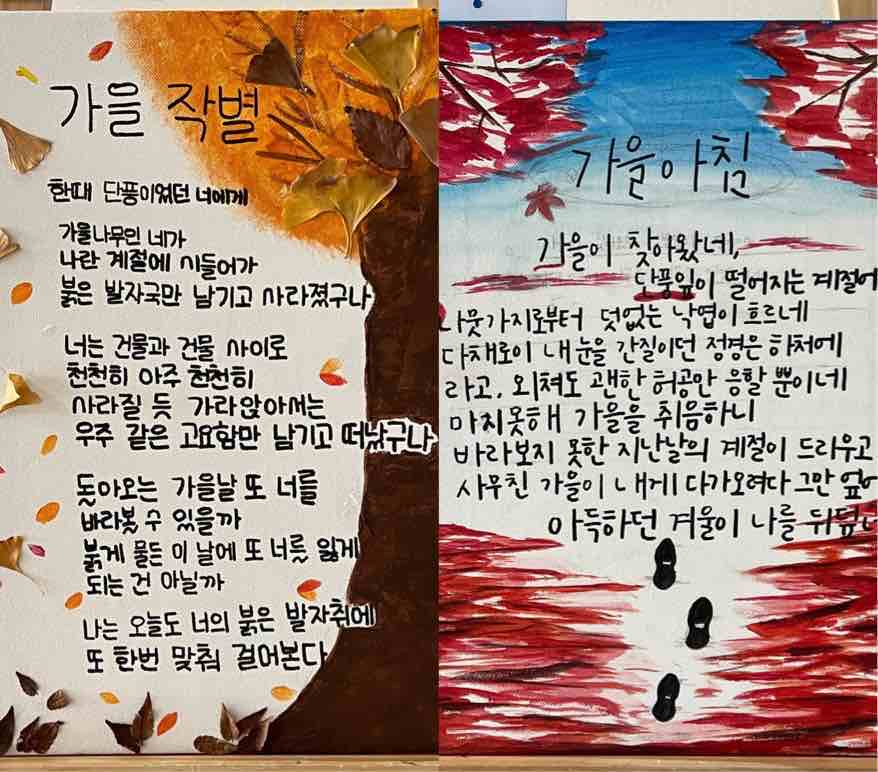 가을 작별
한때 단풍이었던 너에게
가을나무인 네가
나란 계절에 시들어가
붉은 발자국만 남기고 사라졌구나
너는 건물과 건물 사이로
천천히 아주 천천히
사라질 듯 가라앉아서는
우주 같은 고요함만 남기고 떠났구나
돚아오는 가을날 또 너를
바라봇 수 있을까
붉게 물든 이 날에 또 너를 잃게
되는 건 아닐까
나는 오늘도 너의 붉은 발자취에
또 한번 맞춰 걸어본다
가을 아침
가을이 찾아왔네,
단풍잎이 떨어지는 계절에
나뭇가지로부터 덧없는 낙엽이 흐르네
다채로이 내 눈을 간질이던 정경은 하처에
라고, 외쳐도 괜한 허공만 응할 뿐이네
마지못해 가을을 취음하니
바라보지 못한 지난날의 계절이 드리우고
사무친 가을이 내게 다가오려다 그만
아득하던 겨울이 나를